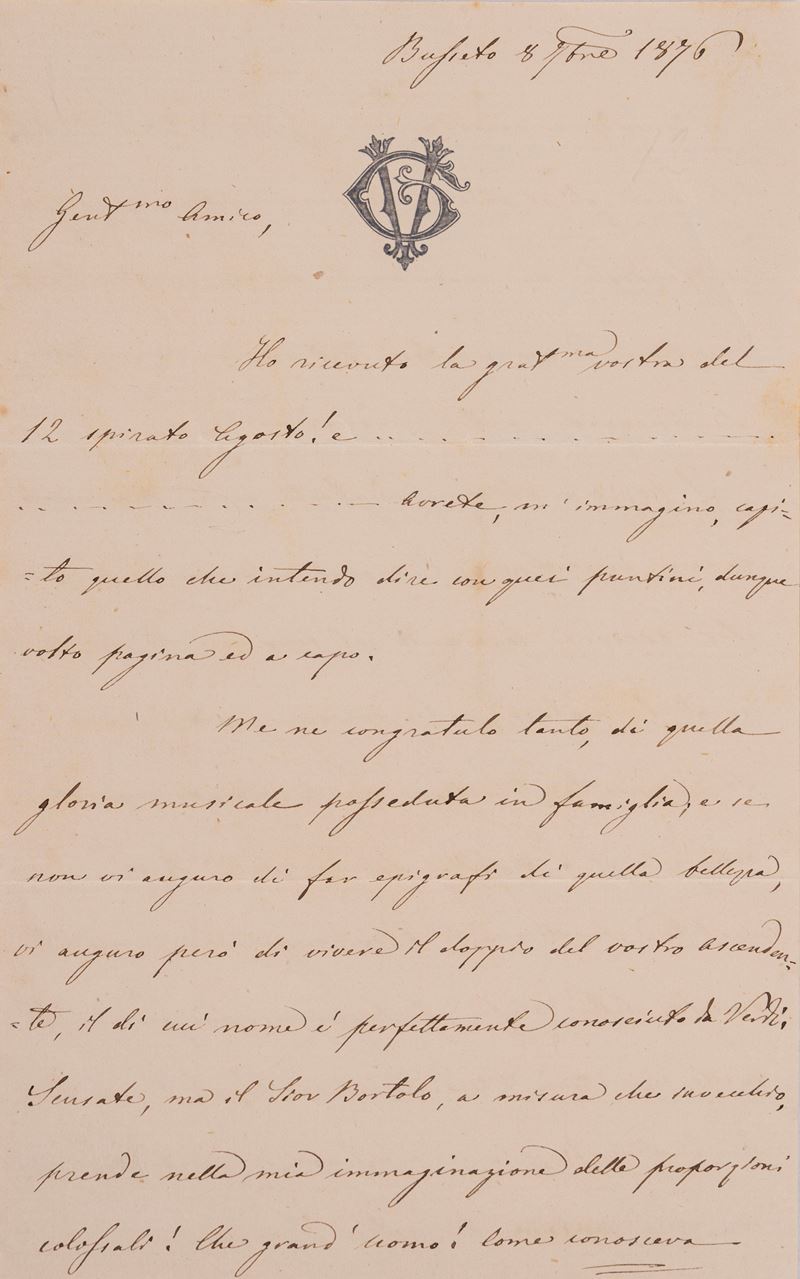 Busseto 8 7bre 1876
GV
Gentmo Amico,
Ho ricevuto la gratma vostra del
12 spirato Agosto! e .. .. . . . . . . . . . . . . .
. . . . . . . . . . . . . Avrete, m'immagino, capi-
=to quello che intendo dire con quei puntini, dunque
volto pagina ed a capo.
Me ne congratulo tanto, di quella
gloria musicale posseduta in famiglia, e se
non vi auguro di far epigrafi di quella bellezza,
vi auguro però di vivere il doppio del vostro ascenden-
=te, il di cui nome é perfettamente conosciuto da Verdi.
Scusate, ma il Sior Bortolo, a misura che invecchio,
prende nella mia immaginazione delle proporzioni
colossali! Che grand'uomo! Come conosceva